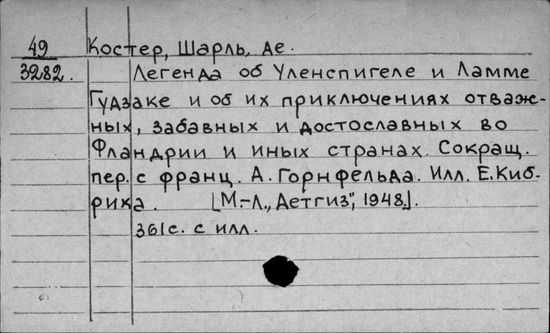 49 Костер, Шарль, де.
3282. Легенда об Уленспигеле и Ламме
Гудзаке и об их приключениях отваж-
ных, забавных и достославных во
Фландрии и иных странах. Сокращ.
пер. с франц. А. Горнфельда. Илл. Е. Киб-
рика. [М.-Л., „Детгиз", 1948.].
361 с. с илл.